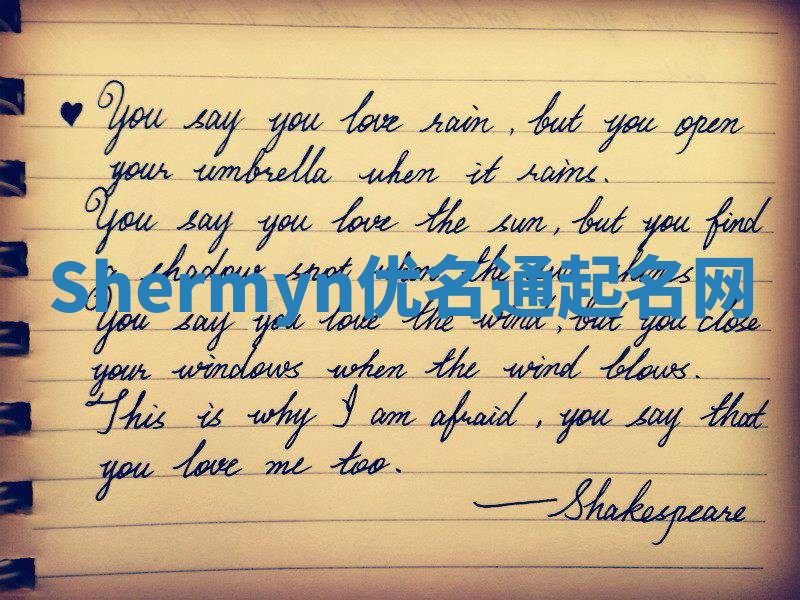 ♥ You say you love rain, but you open
your umbrella when it rains.
You say you love the sun, but you find
a shadow spot when the sun shines
Shermyn优名通起名网
You say you love the wind, but you close
your windows when the wind blows.
This is why I am afraid, you say that
you love me too.
—Shakespeare